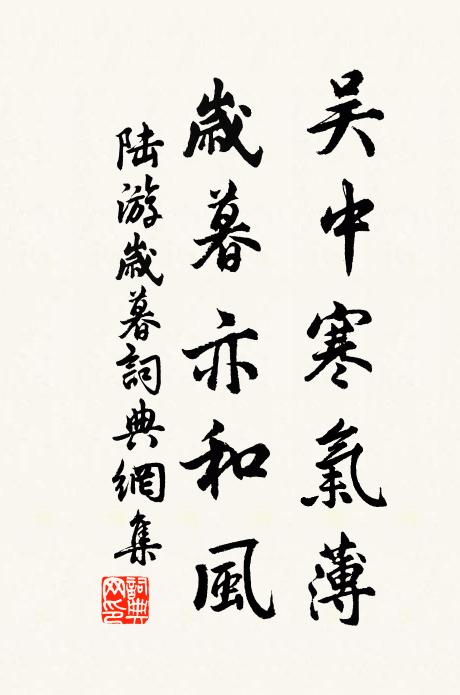 吴中寒氣薄
歲暮亦和風
陆游歲暮詞典網集
詞典网印